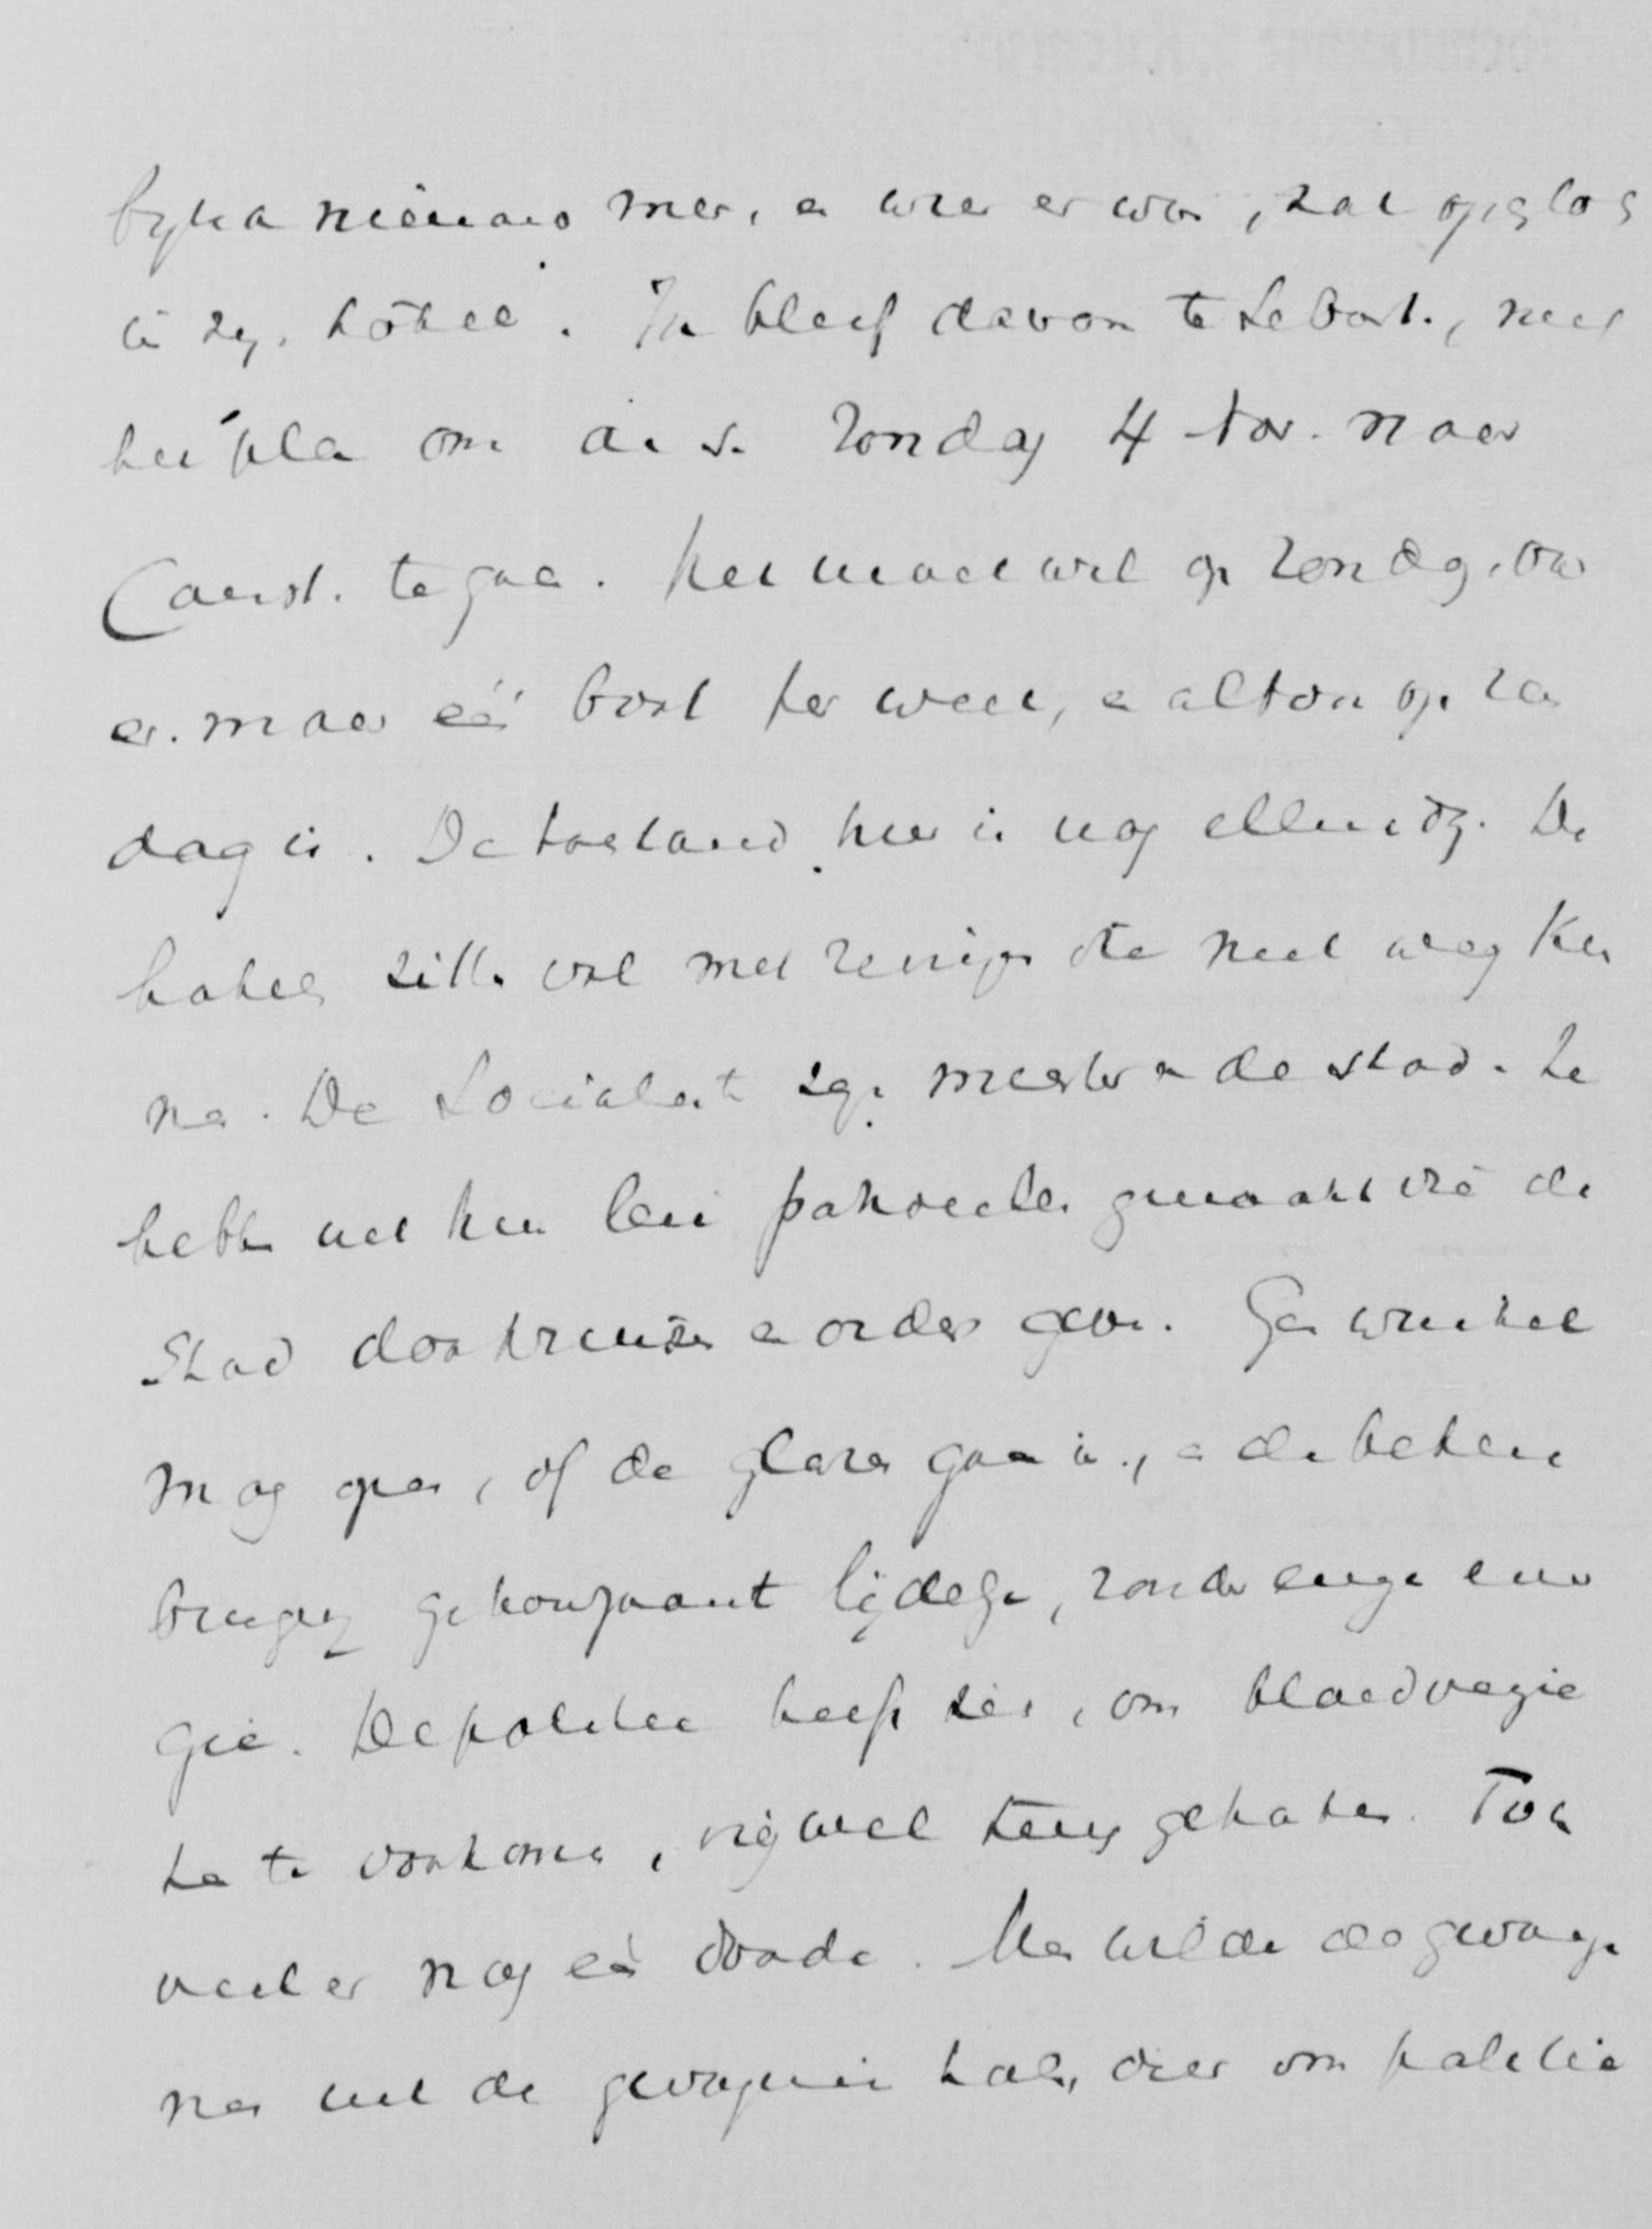 bijna niemand meer, en wie er was, zat opgeslo
in zijn hôtel. Ik bleef daarom te Sebast., met
het plan om a.s. Zondag 4 Nov. naar
Const. te gaan. Het moet wel op Zondag, daar
er maar één boot per week, en altoos op Zon
dag is. De toestand hier is nog ellendig. De
hotels zitten vol met reizigers die niet weg kun
nen. De Socialisten zijn meester in de stad. Ze
hebben uit hun leden patrouilles gemaakt die de
Stad doorkruisen en orders geven. Geen winkel
mag open, of de glazen gaan in, en de betere
burgerij lijdelijk, zonder eenige ener
gie. De politie heeft zich, om bloedvergie
ten te voorkomen, vrijwel teruggehouden. Toch
vielen er nog één doode. Men wilde de gevange
nen uit de gevangenis halen, daar om politie